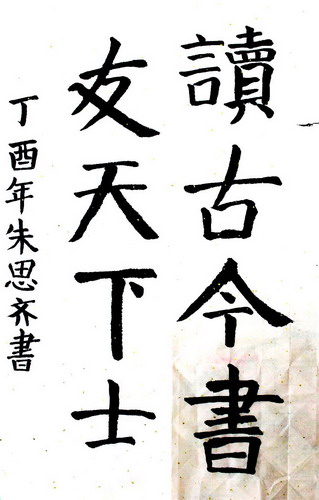 讀古今書
友天下士
丁酉年朱思齐書